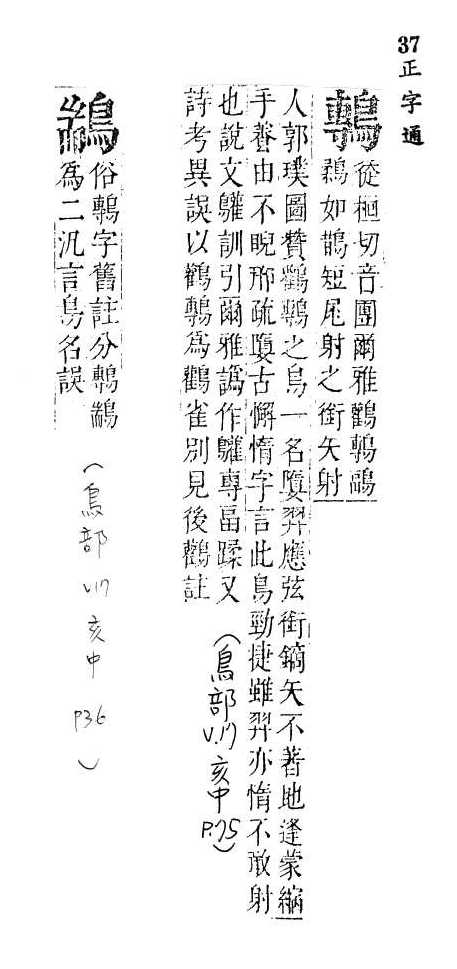 37正字通
鷒
從桓切音團爾雅鸛鷒鶝
鶔如鵲短尾射之銜矢射
人郭璞圖贊鸛鷒之鳥一名墮羿應弦銜鏑矢不著地逢蒙縮
手養由不睨邢疏墮古懈惰字言此鳥勁捷雖羿亦惰不敢射
也說文訓引爾雅譌作專畐蹂又
詩考異誤以鸛鷒為鸛雀別見後鸛註
(鳥部 V.17 亥中 P.75)
俗鷒字舊註分鷒
為二汎言鳥名誤
(鳥部 V17 亥中 P36)